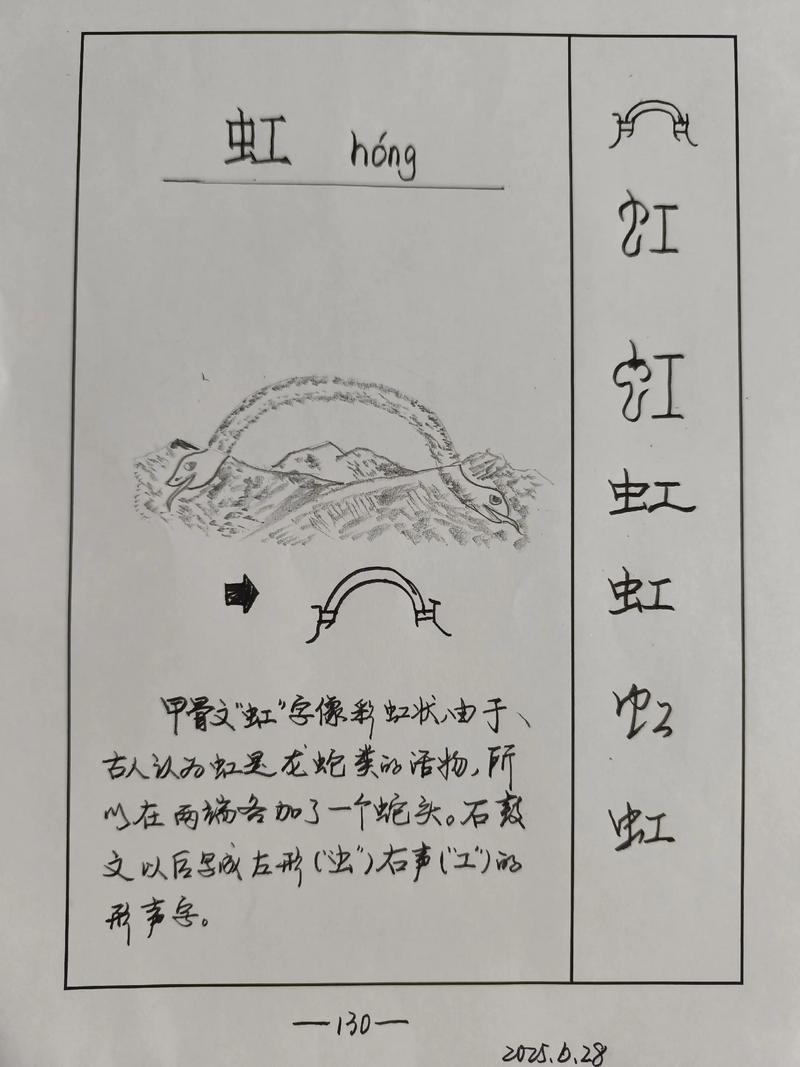 虹 hóng
甲骨文“虹”字像彩虹状，由于、
古人认为虹是龙蛇类的活物，所
以在两端各加了一个蛇头。石鼓
文以后写成左形（“虫”）右声（“工”）的
形声字。
虹
虹
虹
虹
虹
虹
—130—
2025.6.28